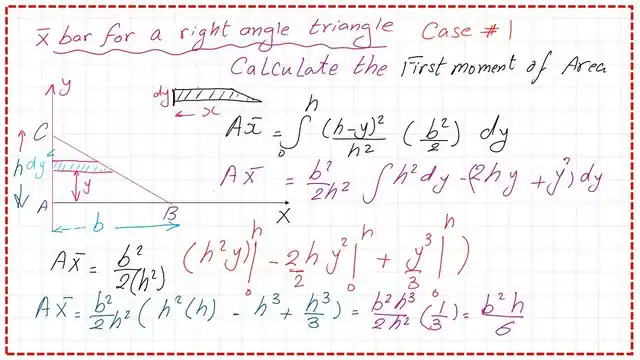 x̄ bar for a right angle triangle Case #1
Calculate the First moment of Area
y
dy
x
C
h dy
y
A
b
B
X
Ax̄ = ∫₀ʰ (h-y)²/h² (b²/2) dy
Ax̄ = b²/2h² ∫ h² dy -(2hy + y²) dy
Ax̄ = b²/2(h²) (h²y|₀ʰ - 2h/2 y²|₀ʰ + y³/3|₀ʰ)
Ax̄ = b²/2h² (h²(h) - h³ + h³/3) = b²h³/2h² (1/3) = b²h/6